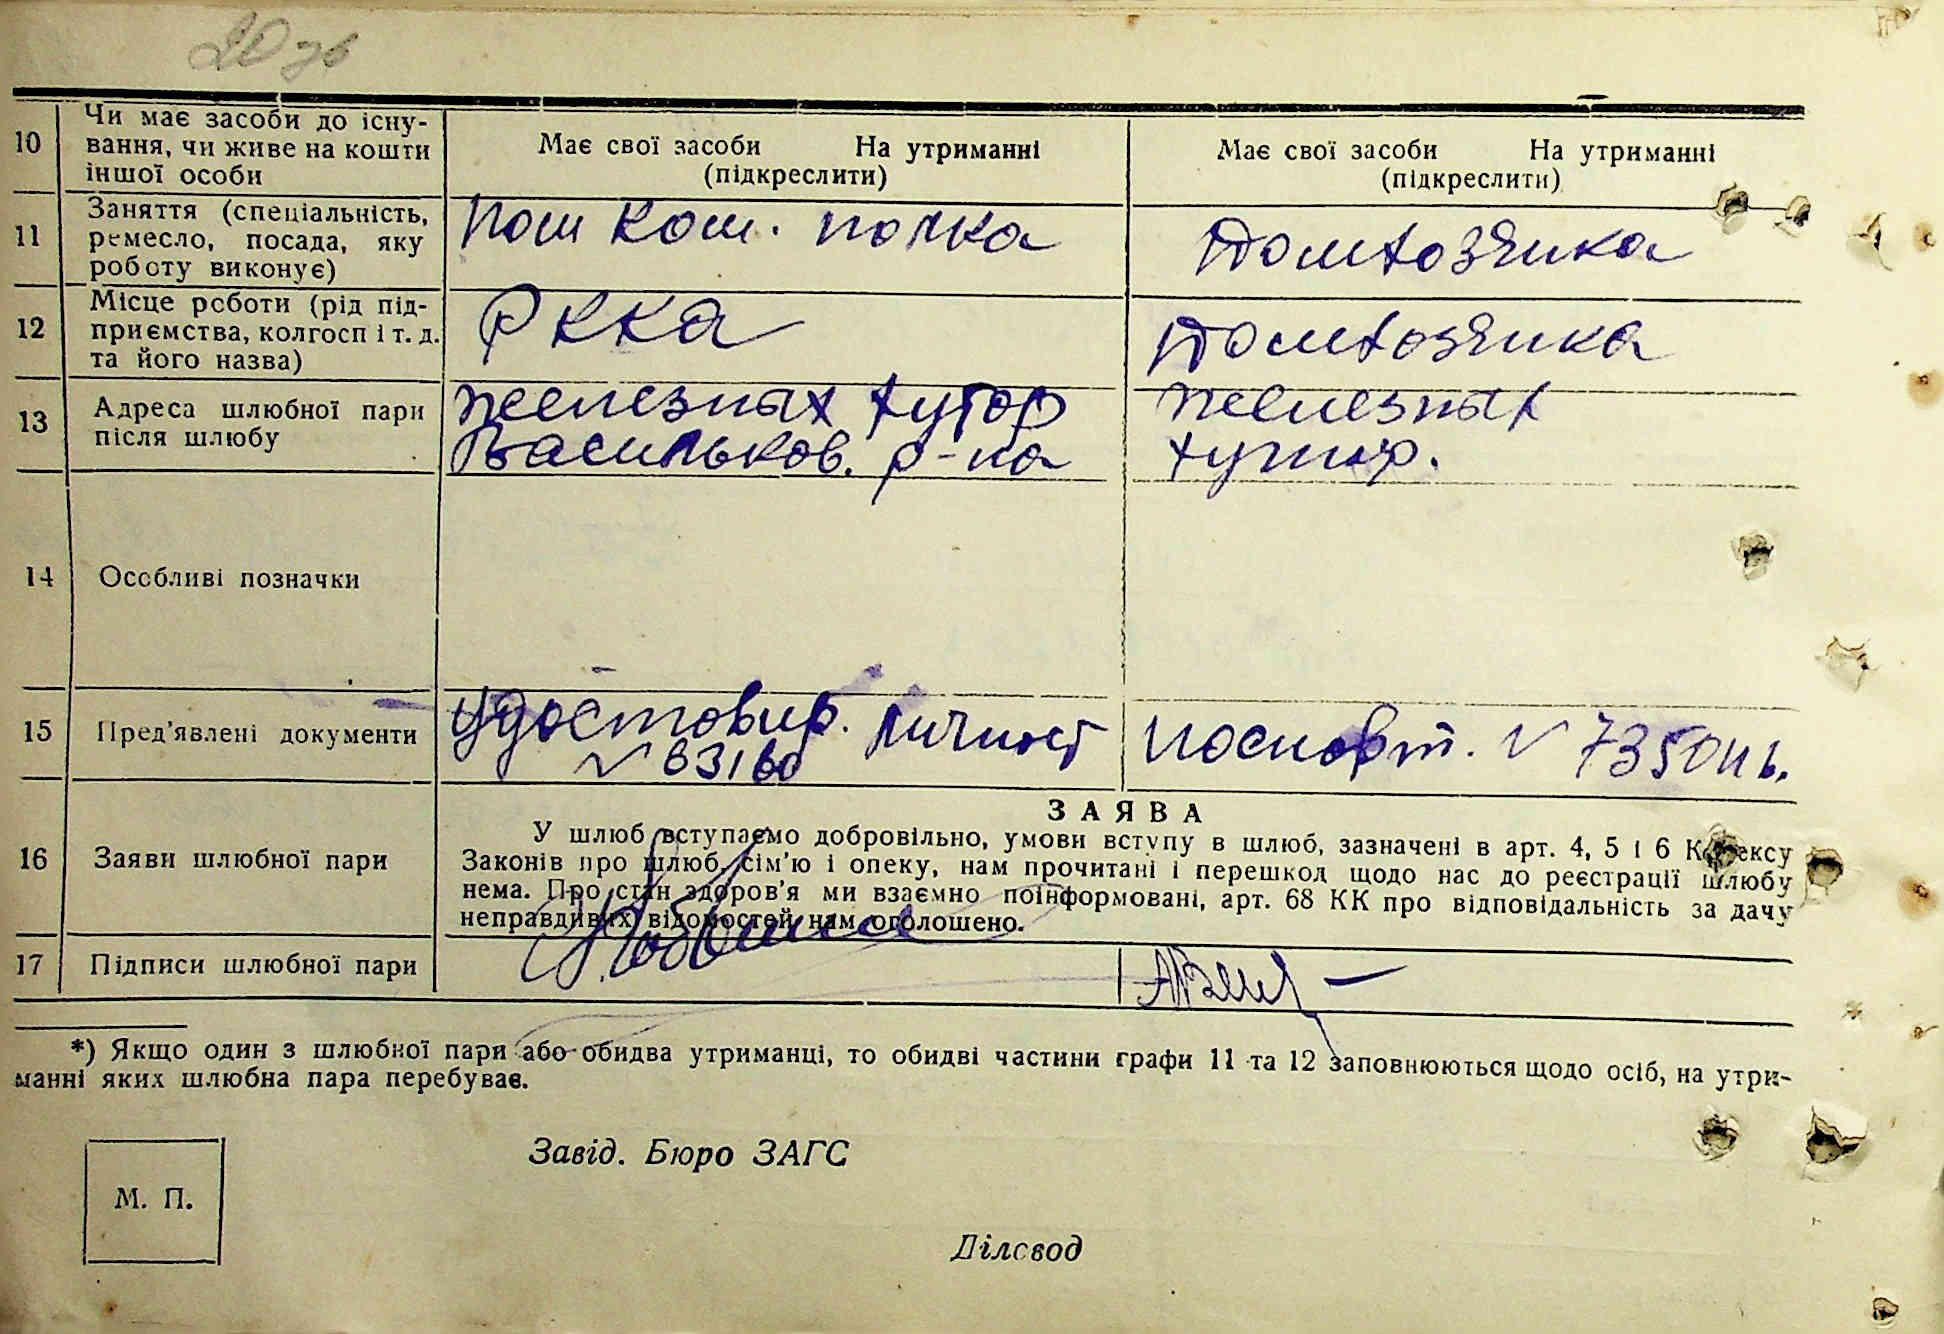 20 зв
10 Чи має засоби до існу-
вання, чи живе на кошти
іншої особи
Має свої засоби На утриманні
(підкреслити)
Має свої засоби На утриманні
(підкреслити)
11 Заняття (спеціальність,
ремесло, посада, яку
роботу виконує)
пом ком. полка
Домхозяика
12 Місце роботи (рід під-
приємства, колгосп і т. д.
та його назва)
РККА
Домхозяика
13 Адреса шлюбної пари
після шлюбу
железных хутор
Васильков. р-на
железных
хутор.
14 Особливі позначки
15 Пред'явлені документи
Удостовир. личност
№ 63160
паспорт. №
16 Заяви шлюбної пари
ЗАЯВА
У шлюб вступаємо добровільно, умови вступу в шлюб, зазначені в арт. 4, 5 і 6 Кодексу
Законів про шлюб, сім'ю і опеку, нам прочитані і перешкод щодо нас до реєстрації шлюбу
нема. Про стан здоров'я ми взаємно поінформовані, арт. 68 КК про відповідальність за дачу
неправдивих відомостей нам оголошено.
17 Підписи шлюбної пари
*) Якщо один з шлюбної пари або обидва утриманці, то обидві частини графи 11 та 12 заповнюються щодо осіб, на утри-
манні яких шлюбна пара перебуває.
Завід. Бюро ЗАГС
М. П.
Діловод